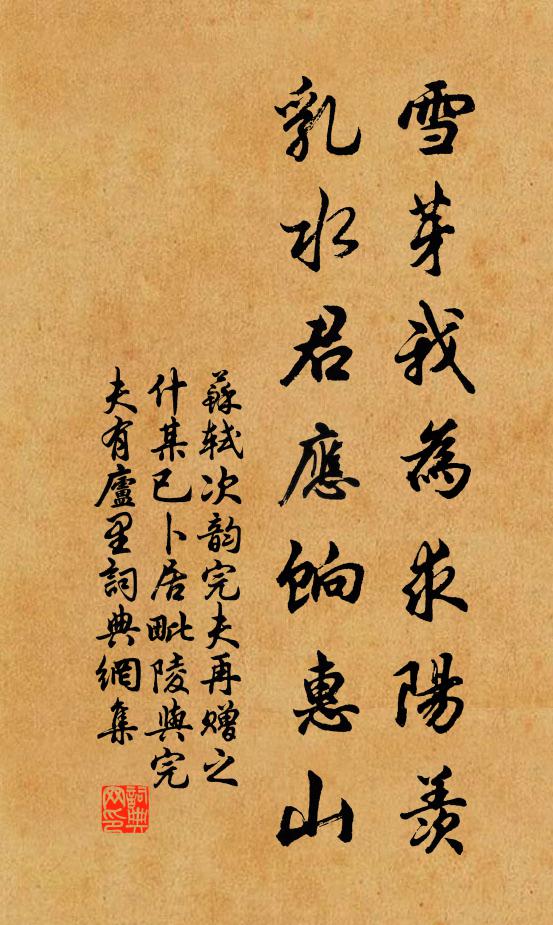 雪芽我為求陽羨
乳水君應餉惠山
蘇軾次韵完夫再贈之
什某已卜居毗陵與完
夫有廬里詞典網集
詞典網印